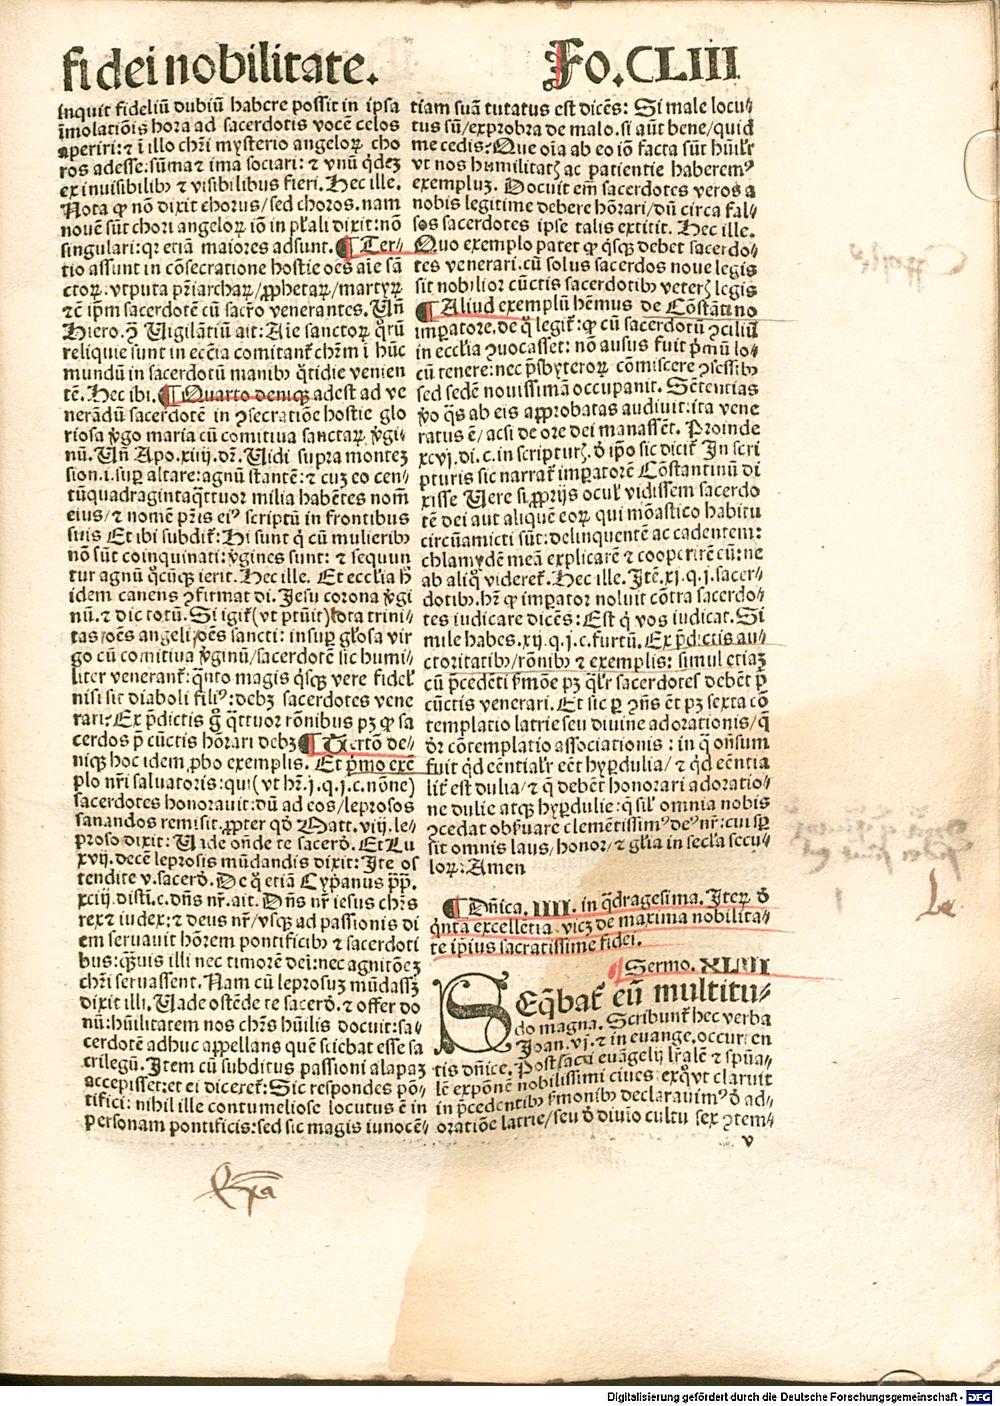 fidei nobilitate.
Fo.CLIII
inquit fideliū dubiū habere possit in ipsa
īmolatiōis hora ad sacerdotis vocē celos
aperiri: ⁊ ī illo chr̄i mysterio angelorꝝ cho
ros adesse: sūma ⁊ ima sociari: ⁊ vnū q̄dez
ex inuisibilibꝰ ⁊ visibilibus fieri. Hec ille.
Nota ꝙ nō dixit chorus/sed choros. nam
nouē sūt chori angelorꝝ iō in pl̄ali dixit: nō
singulari: qꝛ etiā maiores adsunt. ¶ Ter⸗
tio assunt in cōsecratione hostie oēs aīe sā
ctorꝝ: vtputa pr̄iarcharꝝ/ꝓphetarꝝ/martyrꝝ
⁊ē ip̄m sacerdotē cū sacr̄o venerantes. Vn̄
Hiero. ꝯ Vigilātiū ait: Aīe sanctorꝝ q̄rū
reliquie sunt in eccīia comitant̄ chr̄m ī hūc
mundū in sacerdotū manibꝰ q̄tidie venien
tē. Hec ibi. ¶ Quarto deniqꝫ adest ad ve
nerādū sacerdotē in ꝯsecratiōe hostie glo
riosa v̄go maria cū comitiua sanctarꝝ v̄gi⸗
nū. Vn̄ Apo. xiiij. dr̄. Vidi supra montez
sion. i. suꝑ altare: agnū stantē: ⁊ cuz eo cen⸗
tūquadragintaq̄ttuor milia habētes nom̄
eius/⁊ nomē pr̄is eiꝰ scriptū in frontibus
suis Et ibi subdit̄: Hi sunt q̄ cū mulieribꝰ
nō sūt coinquinati: v̄gines sunt: ⁊ sequun
tur agnū q̄cūqꝫ ierit. Hec ille. Et eccl̄ia h̄
idem canens ꝯfirmat di. Jesu corona v̄gi
nū. ⁊ dic totū. Si igit̄(vt ptūit)tota trini⸗
tas/oēs angeli/oēs sancti: insuꝑ gl̄osa vir
go cū comitiua v̄ginū/sacerdotē sic humi⸗
liter venerant̄: q̄nto magis q̄sqꝫ vere fidel̄
nisi sit diaboli filiꝰ: debꝫ sacerdotes vene
rari? Ex p̄dictis g̊ q̄ttuor rōnibus pꝫ ꝙ sa
cerdos p̄ cūctis hōrari debꝫ ¶ Tertō de⸗
niqꝫ hoc idem ꝓbo exemplis. Et p̄mo exē
plo nr̄i saluatoris: qui(vt hr̄. j. q. j. c. nōne)
sacerdotes honorauit: dū ad eos/leprosos
sanandos remisit. ꝓpter qd̄ Matt. viij. le⸗
proso dixit: Vade oñde te sacerd̄. Et Lu
xvij. decē leprosis mūdandis dixit: Ite os
tendite v. sacerd̄. De q̄ etiā Cyp̄anus p̄p̄.
xciij. disti. c. dn̄s nr̄. ait. Dn̄s nr̄ iesus chr̄s
rex ⁊ iudex: ⁊ deus nr̄/vsqꝫ ad passionis di
em seruauit hōrem pontificibꝰ ⁊ sacerdoti
bus: q̄uis illi nec timorē dei: nec agnitōeꝫ
chr̄i seruassent. Nam cū leprosuꝫ mūdassꝫ
dixit illi. Vade ostēde te sacerd̄. ⁊ offer do
nū: hūilitatem nos chr̄s hūilis docuit: sa⸗
cerdotē adhuc appellans quē sciebat esse sa
crilegū. Item cū subditus passioni alapaꝫ
accepisset: et ei diceret̄: Sic respondes pō⸗
tifici: nihil ille contumeliose locutus ē in
personam pontificis: sed sic magis innocē⸗
tiam suā tutatus est dicēs: Si male locu⸗
tus sū/exprobra de malo. si aūt bene/quid
me cedis? Que oīa ab eo iō facta sūt hūil̄r
vt nos humilitatꝫ ac patientie haberemꝰ
exempluꝫ. Docuit em̄ sacerdotes veros a
nobis legitime debere hōrari/dū circa fal⸗
sos sacerdotes ipse talis extitit. Hec ille.
Quo exemplo patet ꝙ q̄sqꝫ debet sacerdo⸗
tes venerari. cū solus sacerdos noue legis
sit nobilior cūctis sacerdotibꝰ veterꝫ legis
¶ Aliud exemplū hēmus de Cōstātino
imꝑatore. de q̄ legit̄: ꝙ cū sacerdotū ꝯciliū
in eccl̄ia ꝯuocasset: nō ausus fuit p̄mū lo⸗
cū tenere: nec p̄sbyterorꝝ cōmiscere ꝯsessibꝰ
sed sedē nouissimā occupauit. Sētentias
v̄o q̄s ab eis approbatas audiuit: ita vene
ratus ē/acsi de ore dei manassēt. Proinde
xcvj. di. c. in scripturꝫ. d̄ ip̄o sic dicit̄ In scri
pturis sic narrat̄ imꝑatorē Cōstantinū di
xisse Vere si ꝓprijs ocul̄ vidissem sacerdo
tē dei aut aliquē eorꝝ qui mōastico habitu
circūamicti sūt: delinquentē ac cadentem:
chlamydē meā explicarē ⁊ cooperirē cū: ne
ab aliq̄ videret̄. Hec ille. Itē. xj. q. j. sacer⸗
dotibꝰ. hr̄ ꝙ imꝑator noluit cōtra sacerdo⸗
tes iudicare dicēs: Est q̄ vos iudicat. Si
mile habes. xij. q. j. c. furtū. Ex p̄dictis au⸗
ctoritatibꝰ/rōnibꝰ ⁊ exemplis: simul etiaꝫ
cū p̄cedēti s̄mōe pꝫ q̄l̄r sacerdotes debēt p̄
cūctis venerari. Et sic ꝑ ꝯn̄s ēt pꝫ sexta cō
templatio latrie seu diuine adorationis/q̄
d̄r cōtemplatio associationis: in q̄ on̄sum
fuit q̄d eēntial̄r eēt hyꝑdulia/⁊ q̄d eēntia
lit̄ est dulia/⁊ q̄ debēt honorari adoratio⸗
ne dulie atqꝫ hyꝑdulie: q̄ sil̄ omnia nobis
ꝯcedat obs̄uare clemētissimꝰ deꝰ nr̄: cui sꝑ
sit omnis laus/honor/⁊ gl̄ia in secl̄a secu⸗
lorꝝ: Amen
¶ Dn̄ica. IIII. in q̄dragesima. Iterꝝ d̄
q̄nta excellētia. vicꝫ de maxima nobilita⸗
te ip̄ius sacratissime fidei.
¶ Sermo. XLIII
SEq̄bat̄ eū multitu⸗
do magna. Scribunt̄ hec verba
Joan. vj. ⁊ in euange. occurren
tis dn̄ice. Post sacri euāgelij lr̄alē ⁊ sp̄ua⸗
lē exponē nobilissimi ciues ex q̊ vt claruit
in p̄cedentibꝰ s̄monibꝰ declarauimꝰ d̄ ad⸗
oratiōe latrie/seu d̄ diuīo cultu sex ꝯtem⸗
v
Digitalisierung gefördert durch die Deutsche Forschungsgemeinschaft - DFG